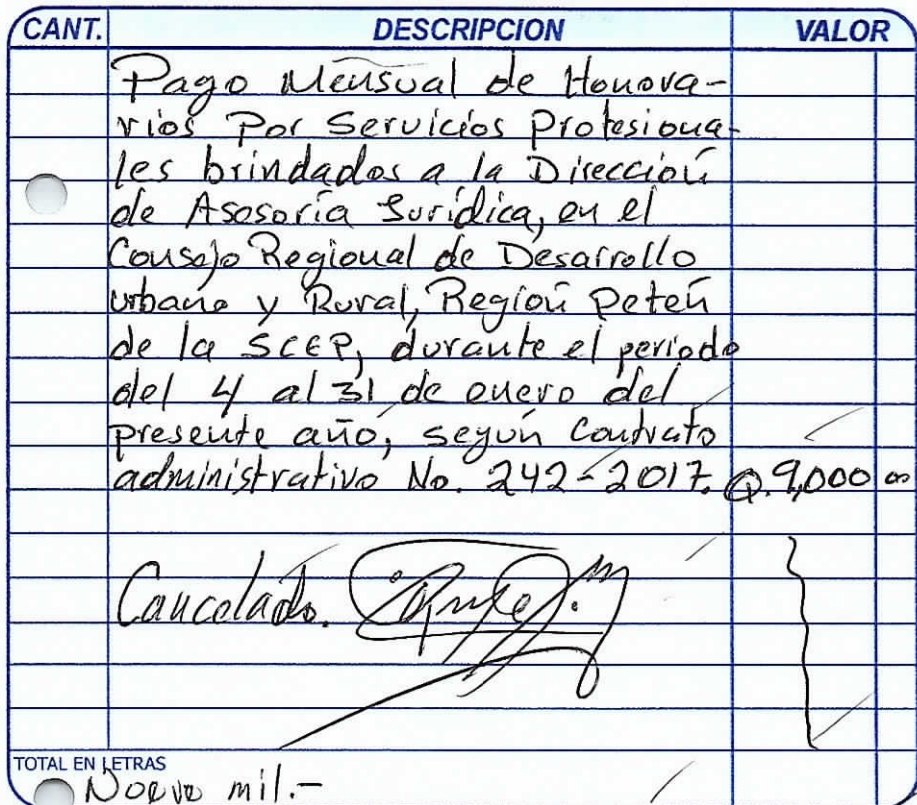 CANT. DESCRIPCION VALOR
Pago Mensual de Honora-
rios Por Servicios Profesiona-
les brindados a la Dirección
de Asesoría Jurídica, en el
Consejo Regional de Desarrollo
urbano y Rural, Región Petén
de la SCEP, durante el periodo
del 4 al 31 de enero del
presente año, según Contrato
administrativo No. 242-2017. Q.9,000 00
Cancelado.
TOTAL EN LETRAS
Nueve mil.-